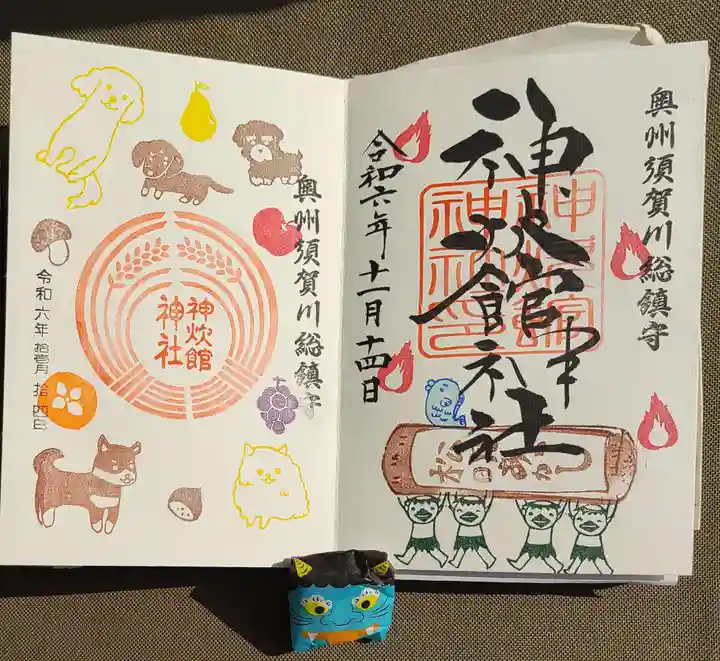 奥州須賀川総鎮守
神炊館神社
令和六年十一月十四日
松明あかし
奥州須賀川総鎮守
神炊館
神社
令和六年拾壹月拾四日